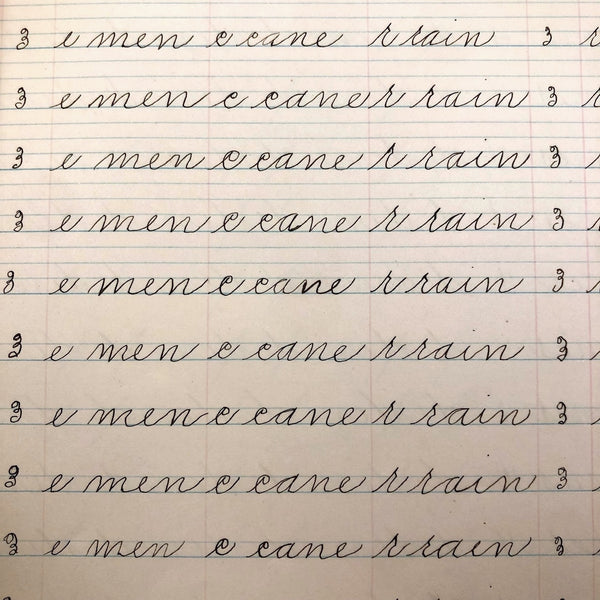 3 e men c cane r rain 3 r
3 e men c cane r rain 3 r
3 e men c cane r rain 3
3 e men c cane r rain 3
3 e men c cane r rain 3
3 e men c cane r rain 3
3 e men c cane r rain 3
3 e men c cane r rain 3
3 e men c cane r rain 3